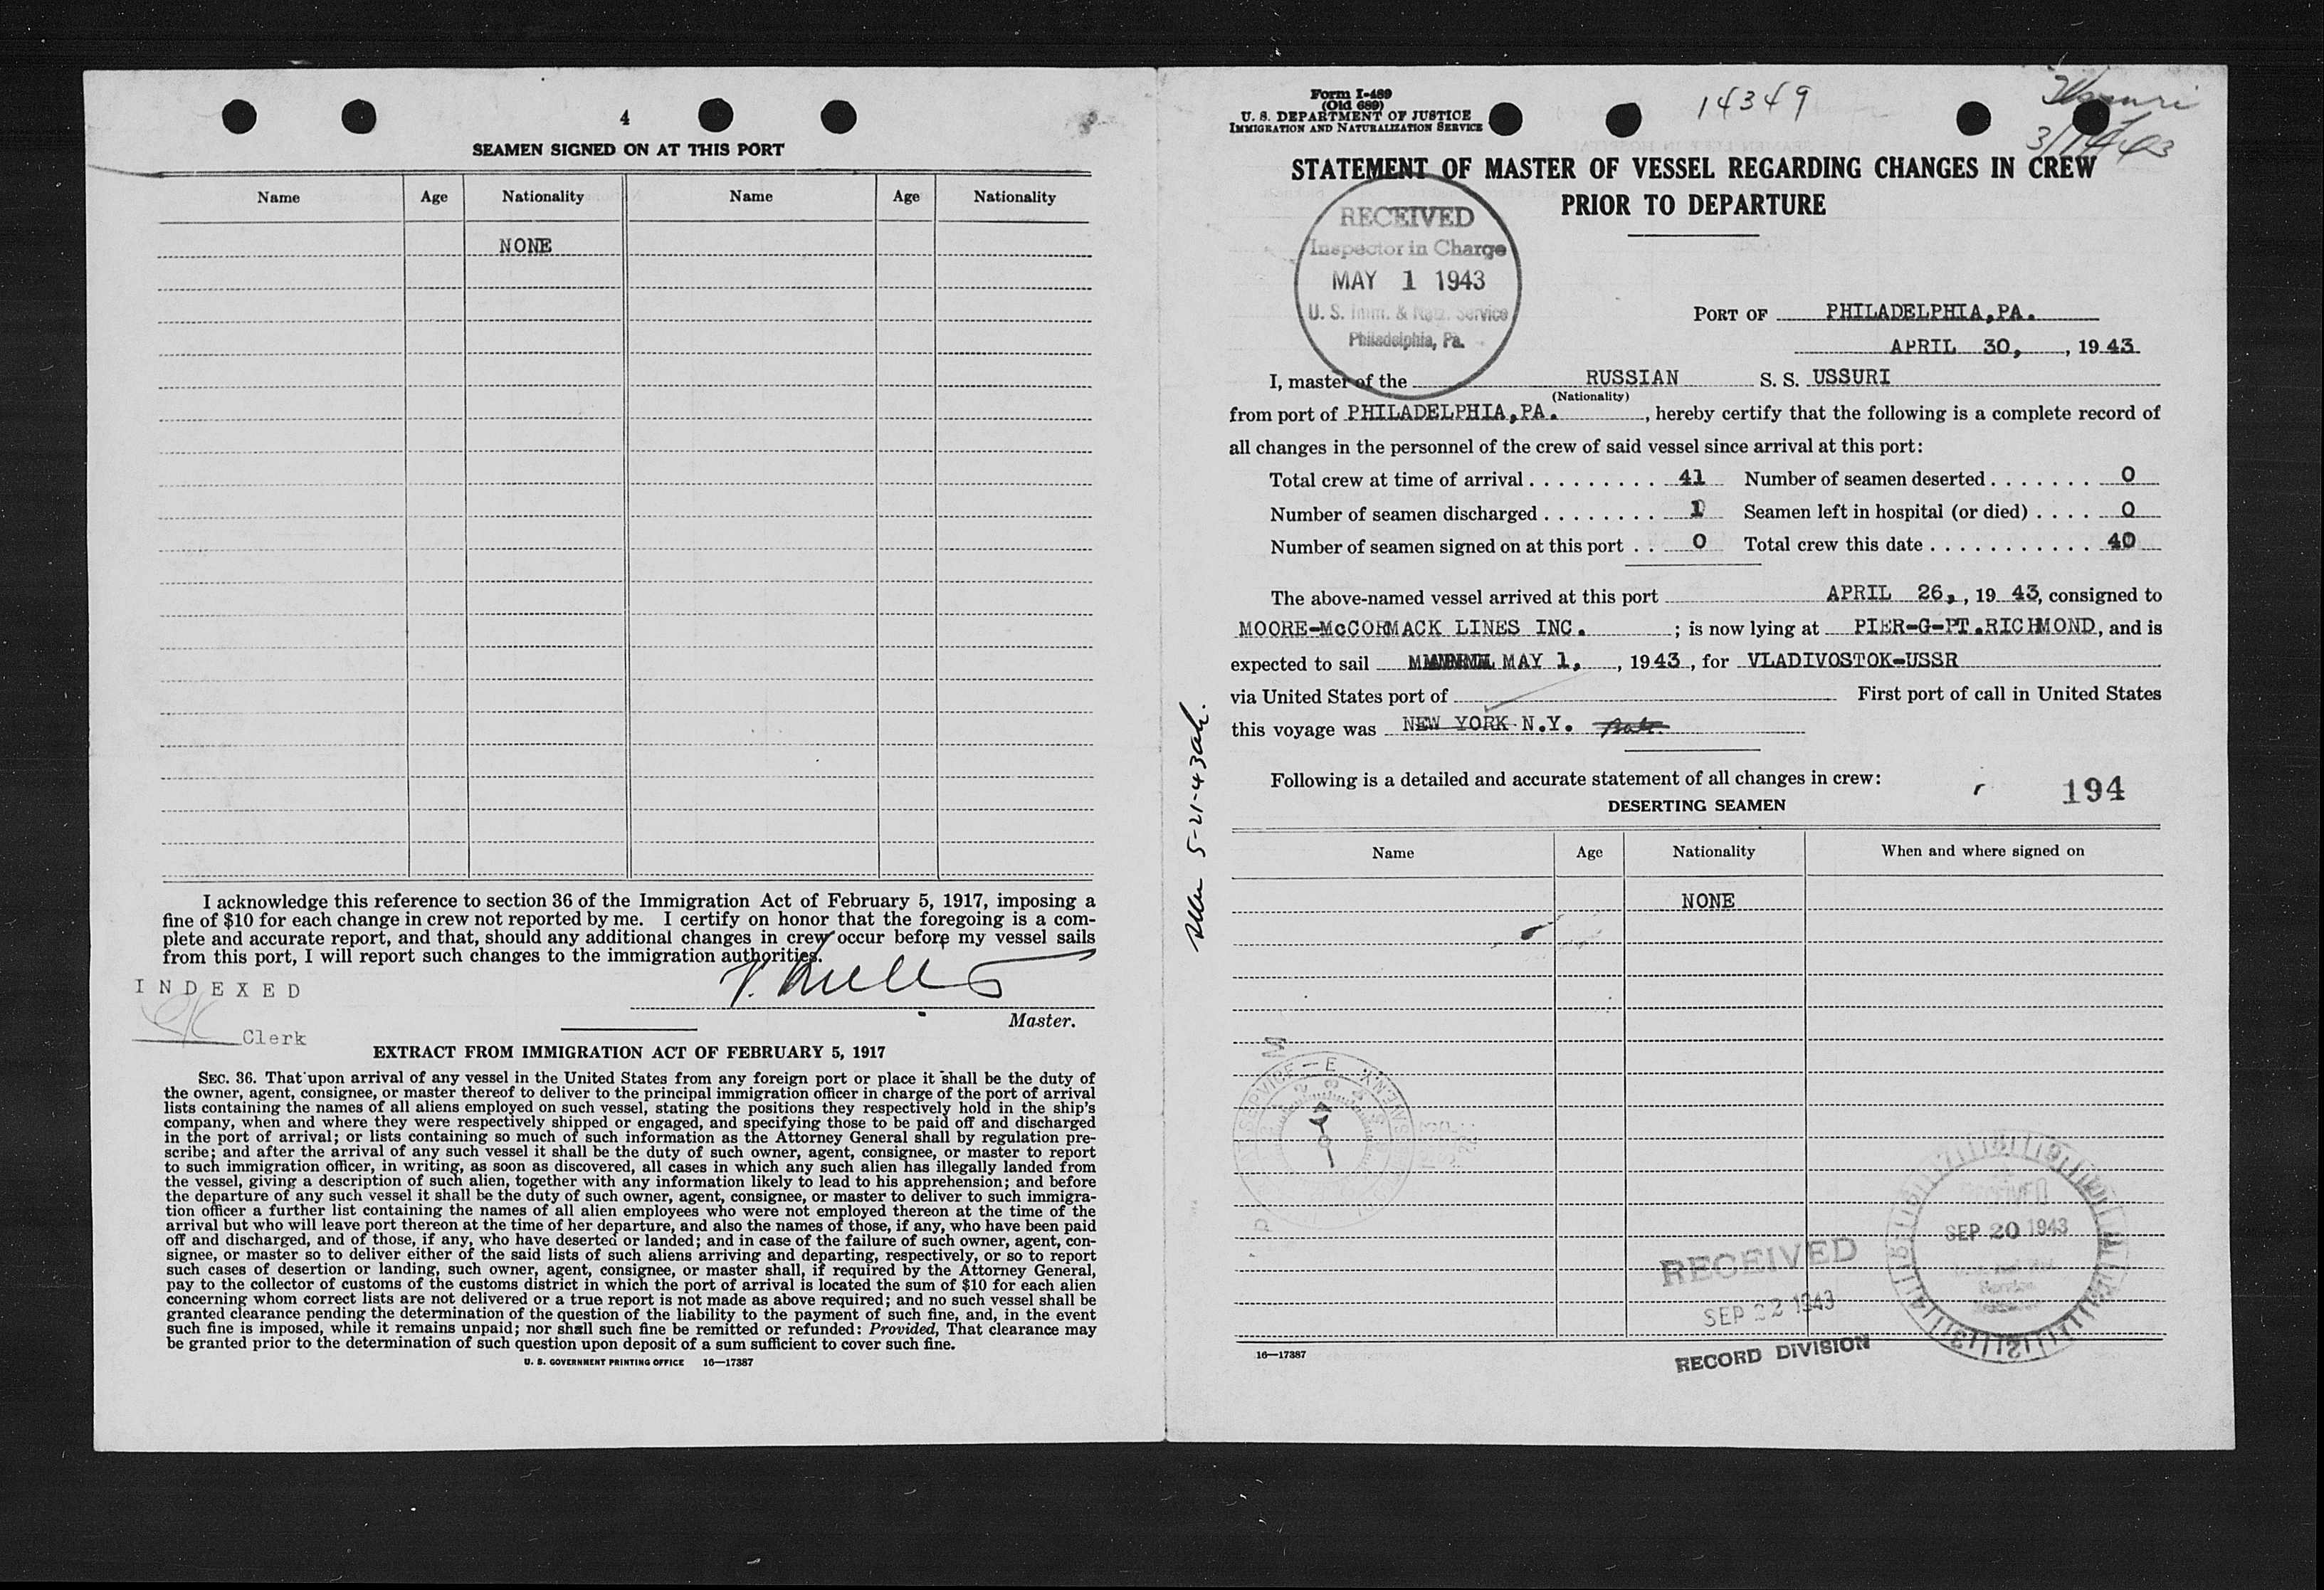 4
SEAMEN SIGNED ON AT THIS PORT
Name Age Nationality Name Age Nationality
NONE
I acknowledge this reference to section 36 of the Immigration Act of February 5, 1917, imposing a
fine of $10 for each change in crew not reported by me. I certify on honor that the foregoing is a com-
plete and accurate report, and that, should any additional changes in crew occur before my vessel sails
from this port, I will report such changes to the immigration authorities.
INDEXED
Master.
Clerk
EXTRACT FROM IMMIGRATION ACT OF FEBRUARY 5, 1917
SEC. 36. That upon arrival of any vessel in the United States from any foreign port or place it shall be the duty of
the owner, agent, consignee, or master thereof to deliver to the principal immigration officer in charge of the port of arrival
lists containing the names of all aliens employed on such vessel, stating the positions they respectively hold in the ship's
company, when and where they were respectively shipped or engaged, and specifying those to be paid off and discharged
in the port of arrival; or lists containing so much of such information as the Attorney General shall by regulation pre-
scribe; and after the arrival of any such vessel it shall be the duty of such owner, agent, consignee, or master to report
to such immigration officer, in writing, as soon as discovered, all cases in which any such alien has illegally landed from
the vessel, giving a description of such alien, together with any information likely to lead to his apprehension; and before
the departure of any such vessel it shall be the duty of such owner, agent, consignee, or master to deliver to such immigra-
tion officer a further list containing the names of all alien employees who were not employed thereon at the time of the
arrival but who will leave port thereon at the time of her departure, and also the names of those, if any, who have been paid
off and discharged, and of those, if any, who have deserted or landed; and in case of the failure of such owner, agent, con-
signee, or master so to deliver either of the said lists of such aliens arriving and departing, respectively, or so to report
such cases of desertion or landing, such owner, agent, consignee, or master shall, if required by the Attorney General,
pay to the collector of customs of the customs district in which the port of arrival is located the sum of $10 for each alien
concerning whom correct lists are not delivered or a true report is not made as above required; and no such vessel shall be
granted clearance pending the determination of the question of the liability to the payment of such fine, and, in the event
such fine is imposed, while it remains unpaid; nor shall such fine be remitted or refunded: Provided, That clearance may
be granted prior to the determination of such question upon deposit of a sum sufficient to cover such fine.
U. S. GOVERNMENT PRINTING OFFICE 16—17387
Form I-489
(Old 689)
U. S. DEPARTMENT OF JUSTICE
IMMIGRATION AND NATURALIZATION SERVICE
14349
Ussuri
STATEMENT OF MASTER OF VESSEL REGARDING CHANGES IN CREW
PRIOR TO DEPARTURE
RECEIVED
Inspector in Charge
MAY 1 1943
U. S. Imm. & Natz. Service
Philadelphia, Pa.
PORT OF PHILADELPHIA,PA.
APRIL 30, , 19 43
I, master of the RUSSIAN S. S. USSURI
(Nationality)
from port of PHILADELPHIA,PA. , hereby certify that the following is a complete record of
all changes in the personnel of the crew of said vessel since arrival at this port:
Total crew at time of arrival . . . . . . . . . 41 Number of seamen deserted . . . . . . . 0
Number of seamen discharged . . . . . . . . 1 Seamen left in hospital (or died) . . . . 0
Number of seamen signed on at this port . . 0 Total crew this date . . . . . . . . . . . 40
The above-named vessel arrived at this port APRIL 26, , 19 43, consigned to
MOORE-McCORMACK LINES INC. ; is now lying at PIER-G-PT.RICHMOND, and is
expected to sail MAY 1, , 1943 , for VLADIVOSTOK-USSR
via United States port of First port of call in United States
this voyage was NEW YORK N.Y.
Following is a detailed and accurate statement of all changes in crew:
194
DESERTING SEAMEN
Name Age Nationality When and where signed on
NONE
5-21-43
RECEIVED
SEP 20 1943
RECEIVED
SEP 22 1943
RECORD DIVISION
16—17387